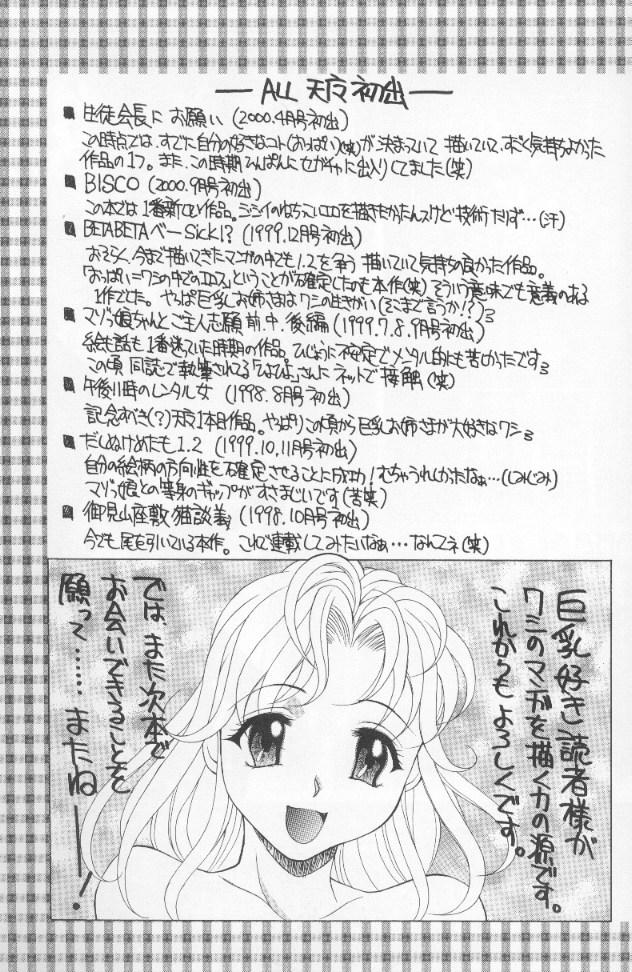 — ALL 天魔 初出 —
■ 生徒会長に お願い (2000.4月号初出)
この時点では、すでに自分の好きなコト(おっぱい)(笑)が 決まっていて 描いていて、すごく気持ちよかった
作品の1つ。また、この時期 ひんぱんに セガギャに出入りしてました(笑)
■ BISCO (2000.9月号初出)
この本では 1番新しい作品。ジジイのねちっこいエロを描きたかったんスけど 技術たりず…(汗)
■ BETABETAべー Sick!? (1999.12月号初出)
おそらく、今まで描いてきたマンガの中でも 1.2を争う 描いていて気持ちの良かった作品。
「おっぱい=ワシの中でのエロス」ということが確定したのも本作(笑) そういう意味でも 意義のある
1作でした。 やっぱ巨乳お姉さまは ワシの生きがい(そこまで言うか!?)
■ マゾッ娘ちゃんとご主人志願 前.中.後編 (1999.7.8.9月号初出)
絵も話も 1番迷っていた時期の作品。ひじょうに 不安定で メンタル的にも苦しかったです
この頃 同誌で執筆される さんに ネットで 接触(笑)
■ 午後11時のレンタル女 (1998.8月号初出)
記念すべき(?) 天魔1本目作品。やっぱりこの頃から 巨乳お姉さまが大好きなワシ
■ だしぬけめたも 1.2 (1999.10,11月号初出)
自分の絵柄の方向性を確定させることに成功! むちゃうれしかったなぁ…(しみじみ)
マゾッ娘との等身のギャップがすさまじいです(苦笑)
■ 御見山座敷猫談義 (1998.10月号初出)
今でも 尾を引いている本作。これで連載してみたいなぁ…なんてネ(笑)
巨乳好き読者様が
ワシのマンガを描く力の源です。
これからも よろしくです。
では、また次本で
お会いできることを
願って…… またねー!